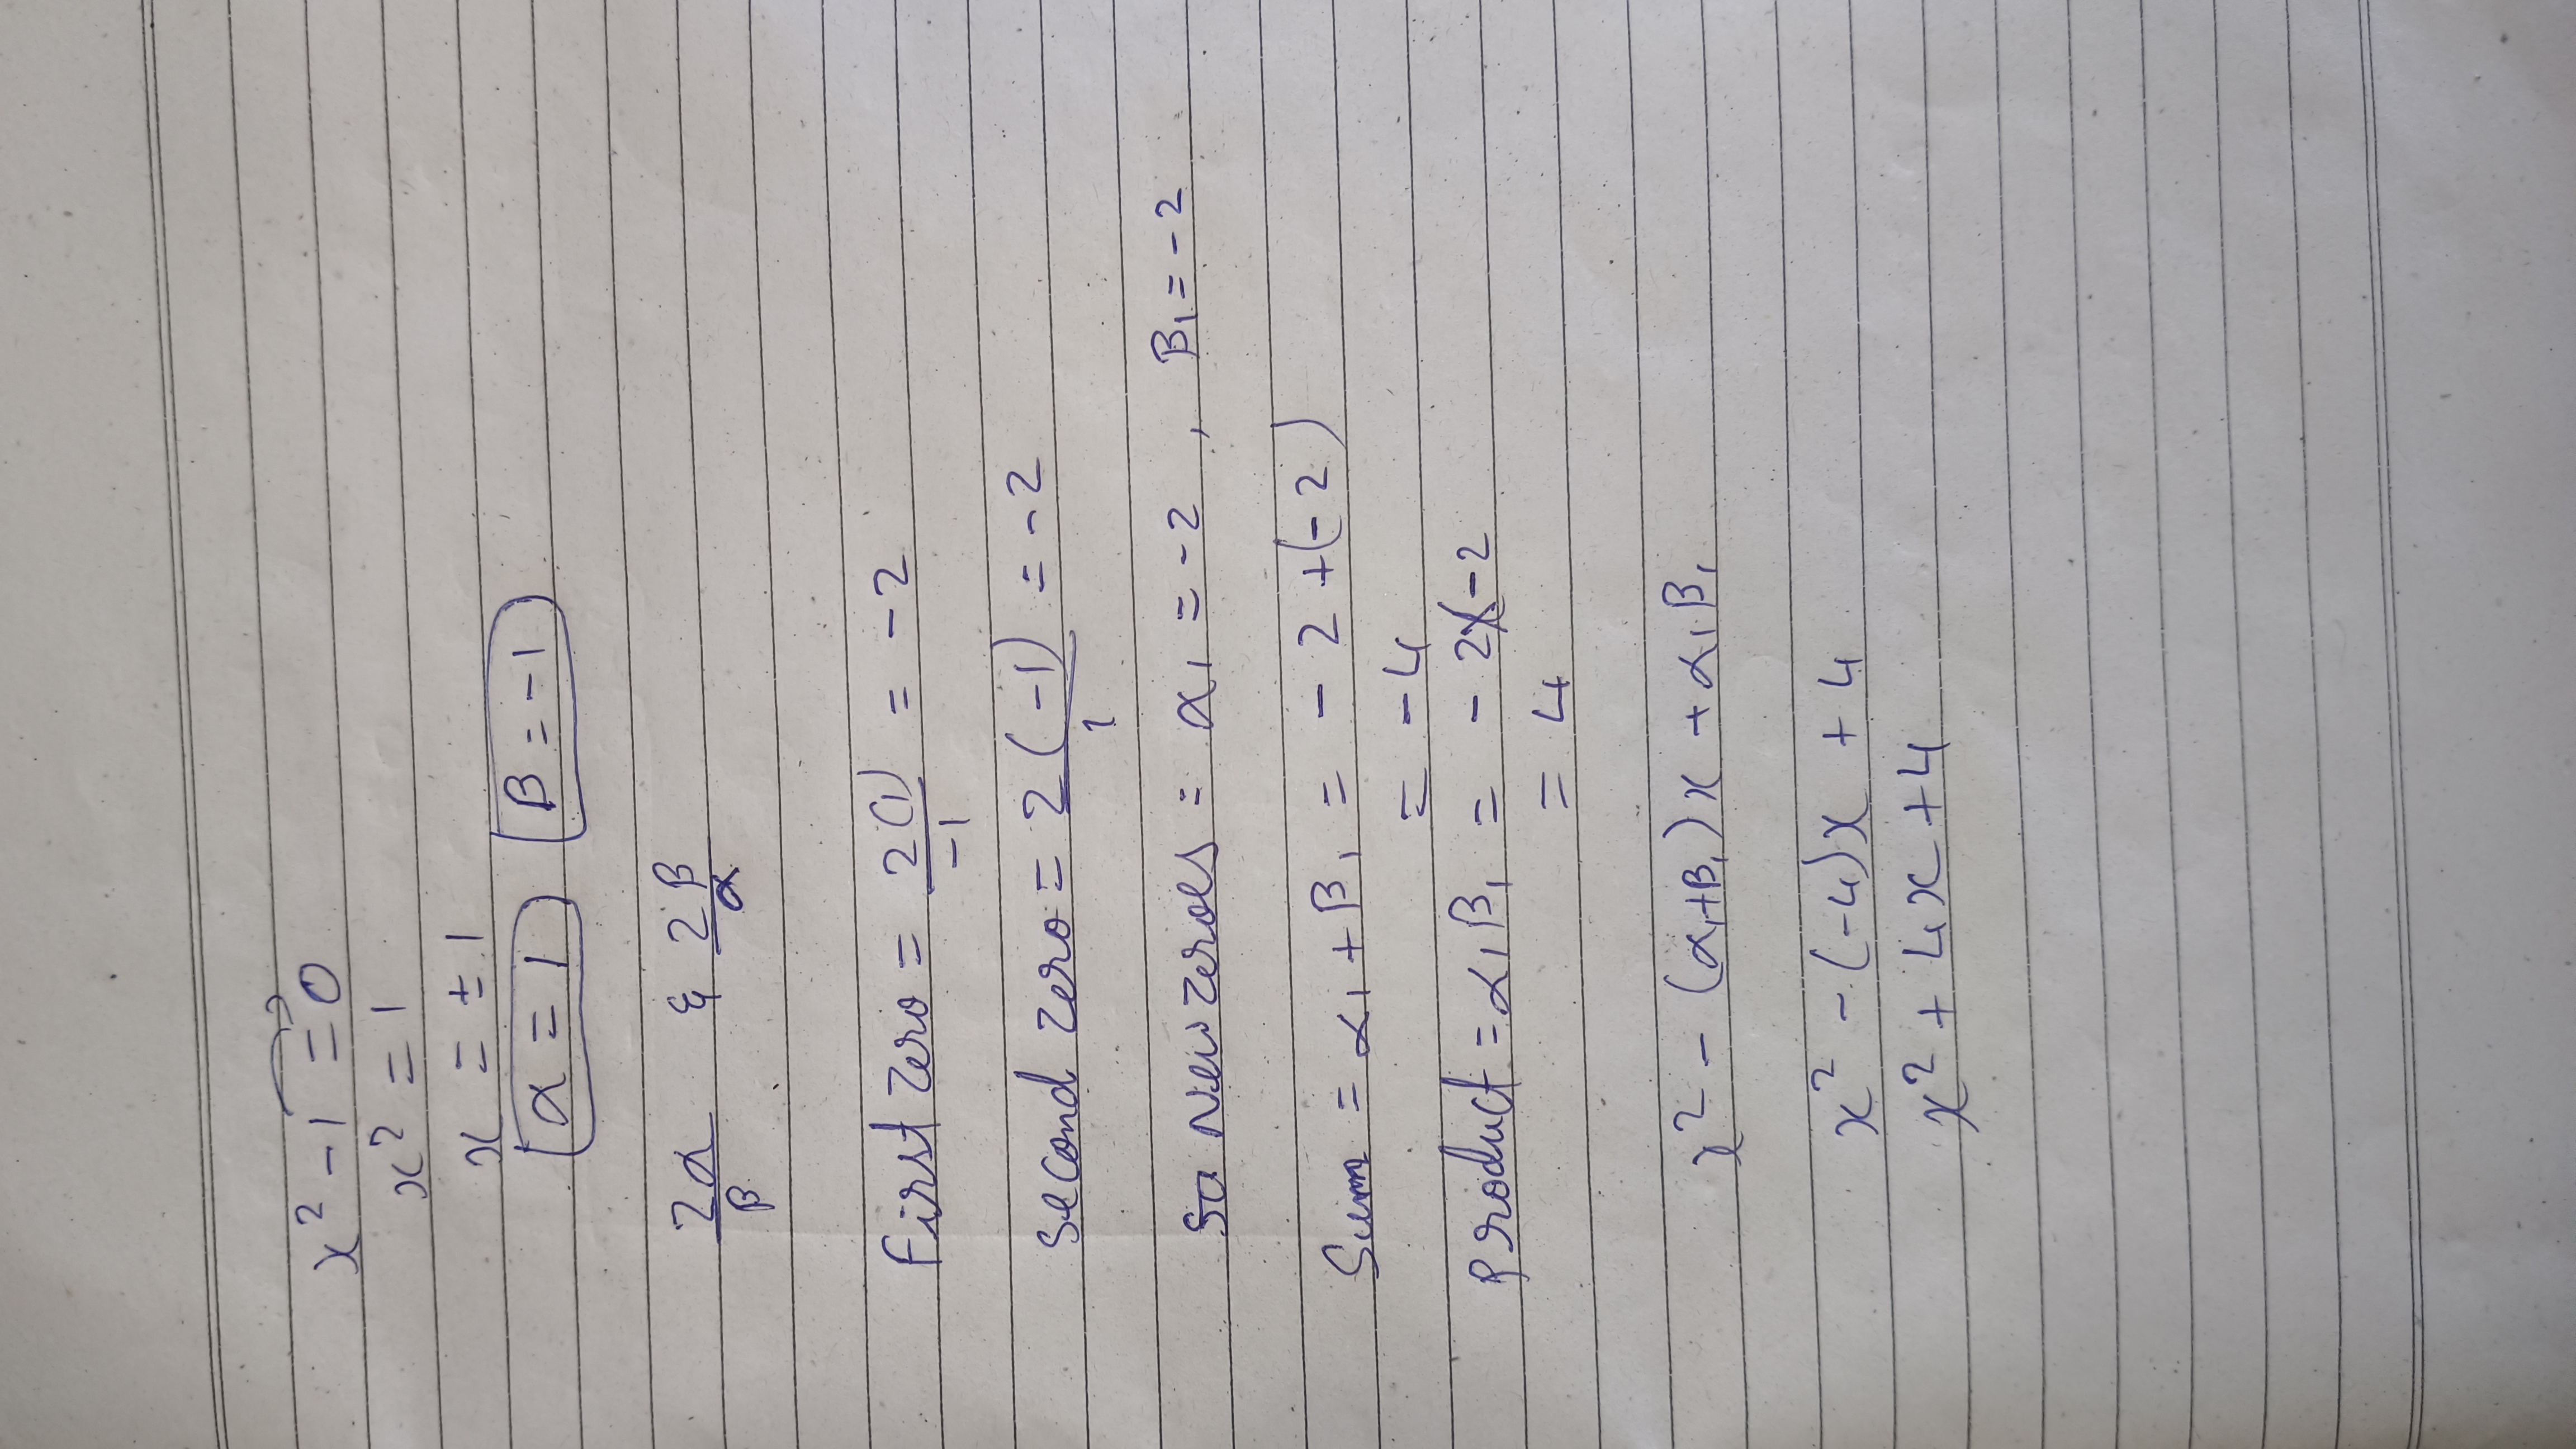 x² - 1 = 0
x² = 1
x = ± 1
α = 1 β = -1
2α/β & 2β/α
First Zero = 2(1)/-1 = -2
Second Zero = 2(-1)/1 = -2
So New Zeroes = α₁ = -2, β₁ = -2
Sum = α₁ + β₁ = -2 + (-2)
= -4
Product = α₁β₁ = -2x-2
= 4
x² - (α₁+β₁)x + α₁β₁
x² - (-4)x + 4
x² + 4x + 4